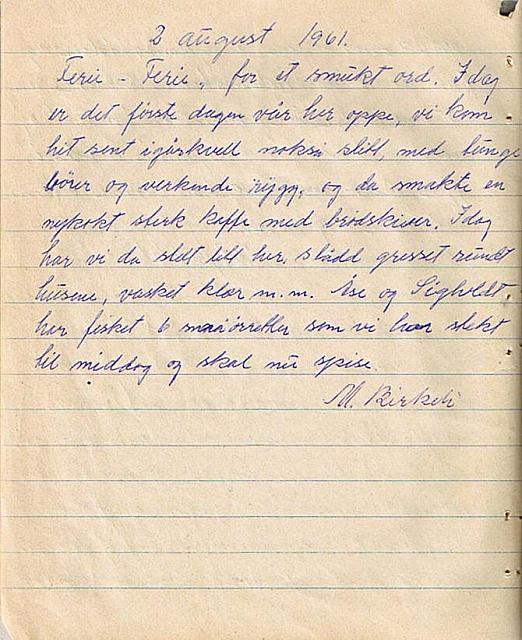 2 august 1961.
Ferie - Ferie, for et smukt ord. Idag
er det første dagen vår her oppe, vi kom
hit sent igårkvell nokså slitt, med tunge
bører og verkende rygg, og da smakte en
nykokt sterk kaffe med brødskiver. Idag
har vi da stelt litt her, slådd gresset rundt
husene, vasket klær m.m. Åse og Sigholdt,
her fisket 6 småørretter som vi har stekt
til middag og skal nu spise.
M. Birkeli